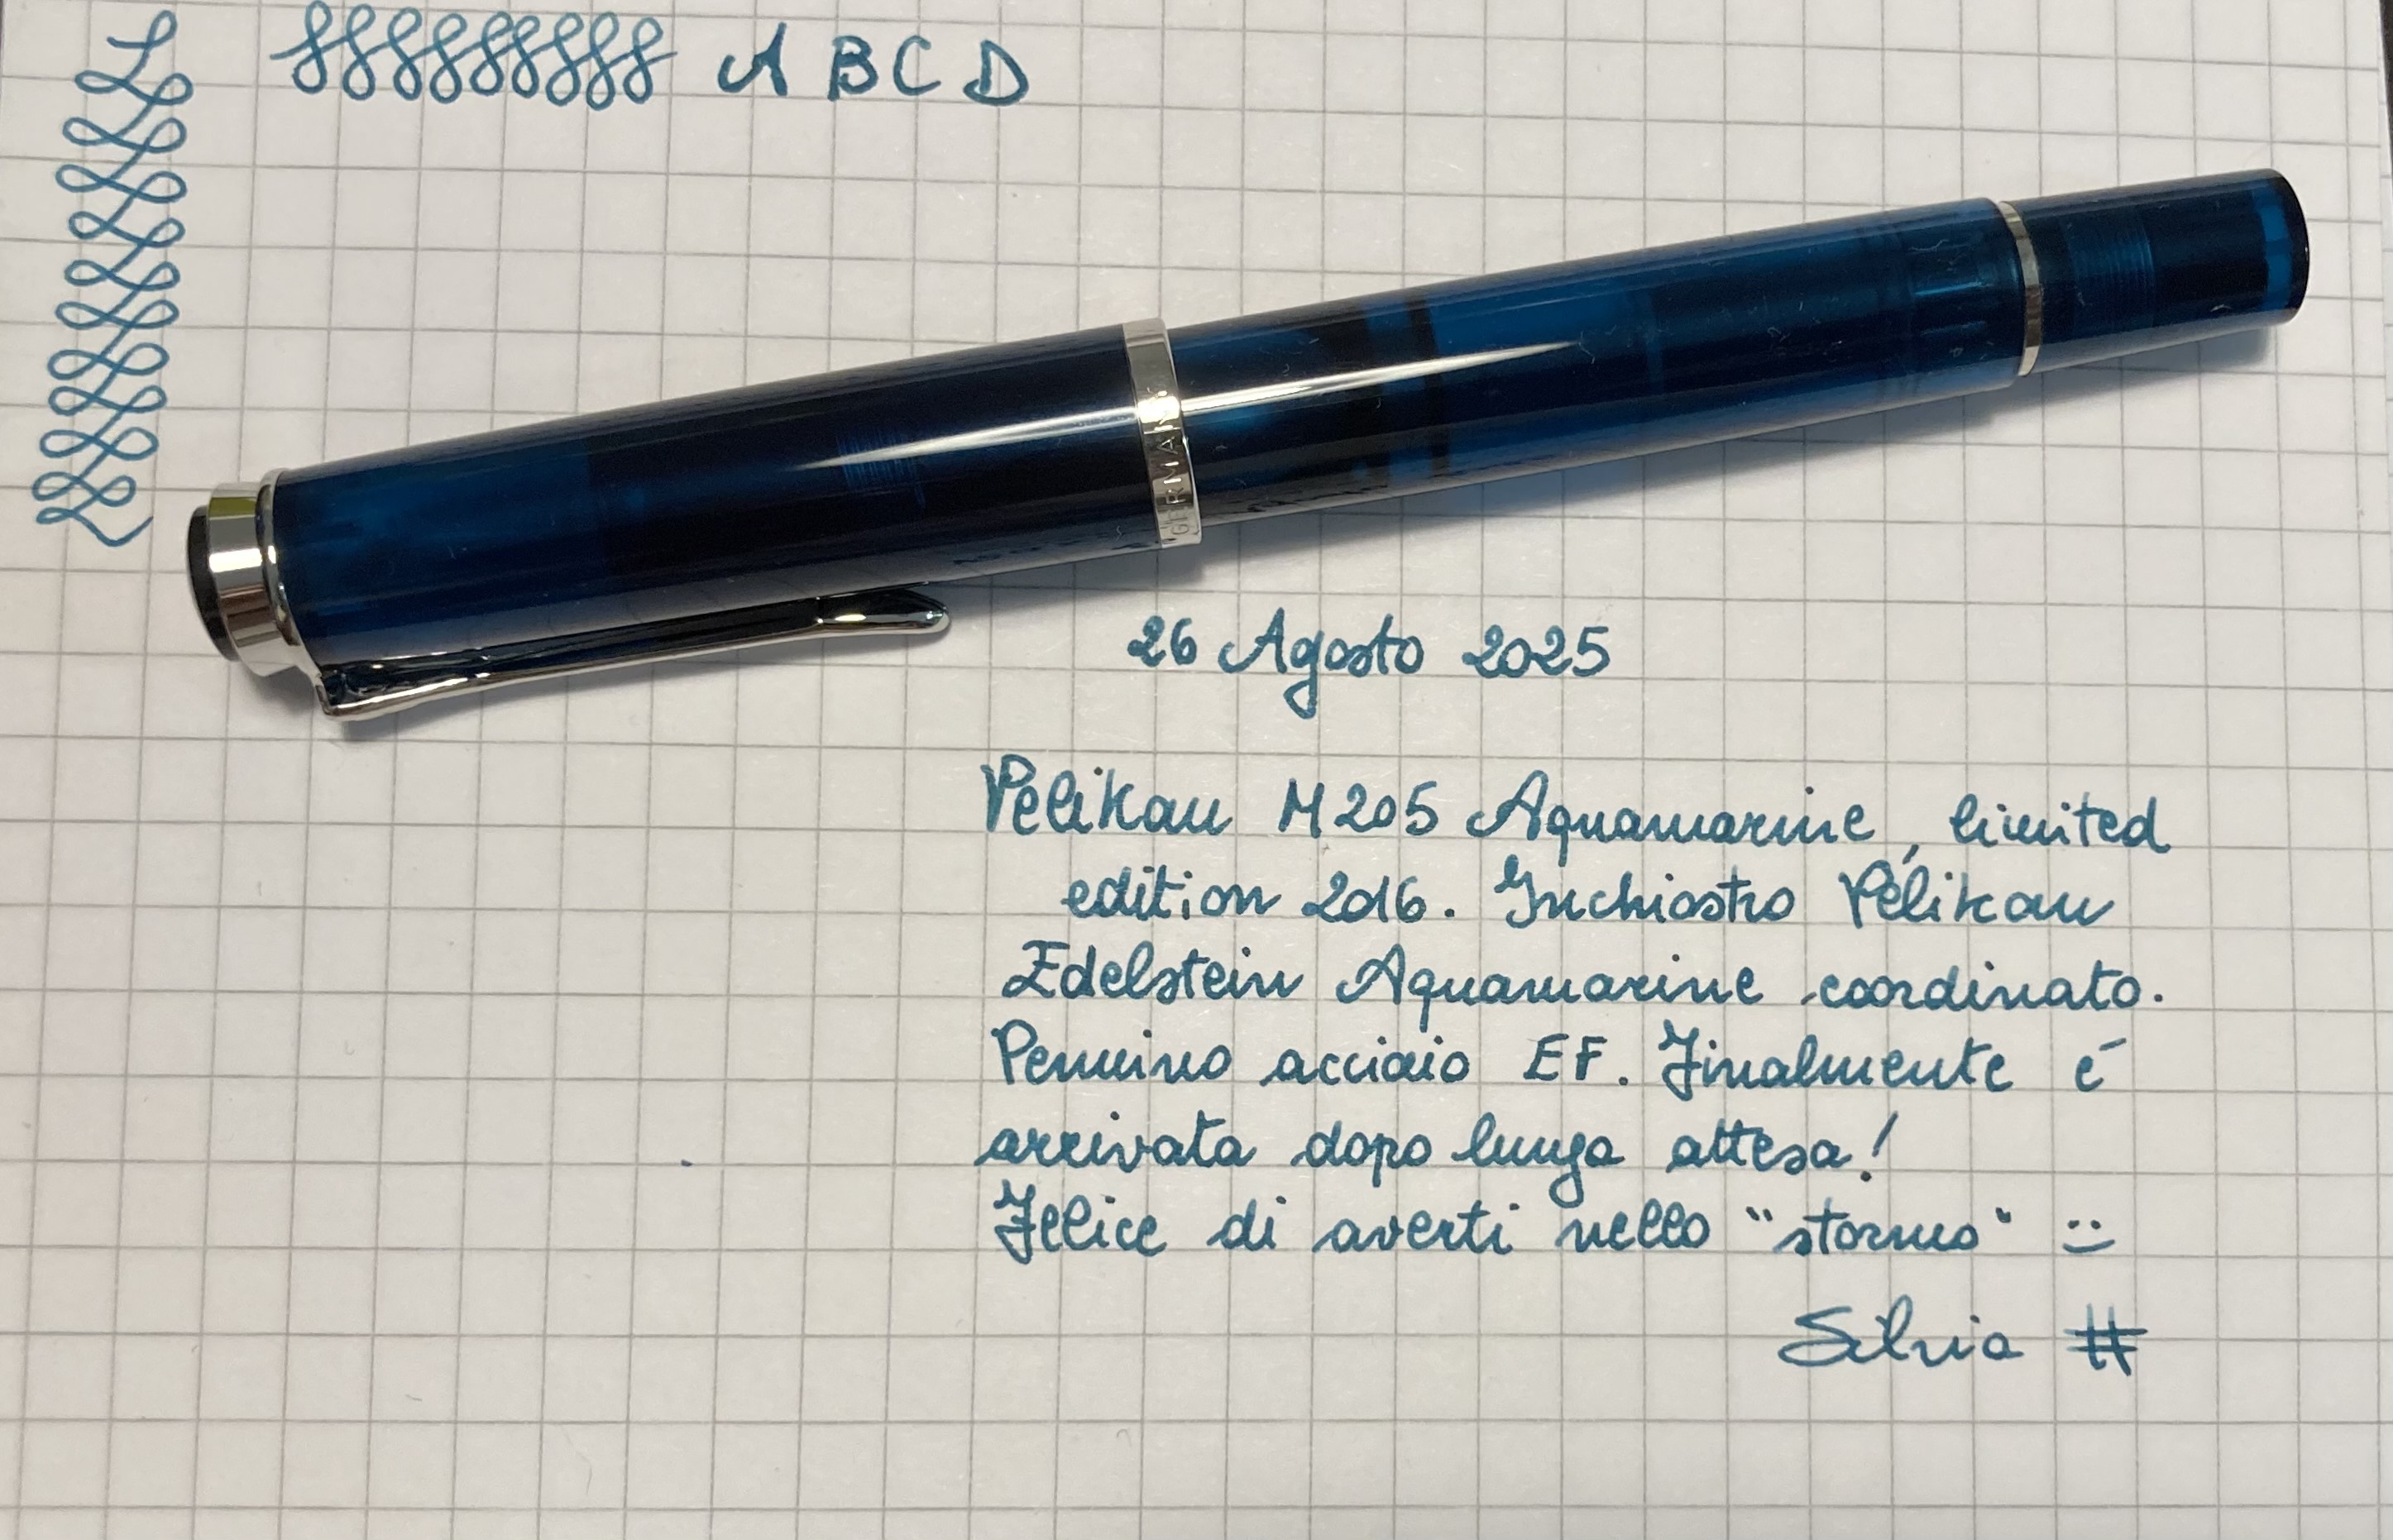 A B C D
GERMANY
26 Agosto 2025
Pelikan M205 Aquamarine, limited
edition 2016. Inchiostro Pelikan
Edelstein Aquamarine coordinato.
Pennino acciaio EF. Finalmente é
arrivata dopo lunga attesa!
Felice di averti nello "stormo" :)
Silvia #